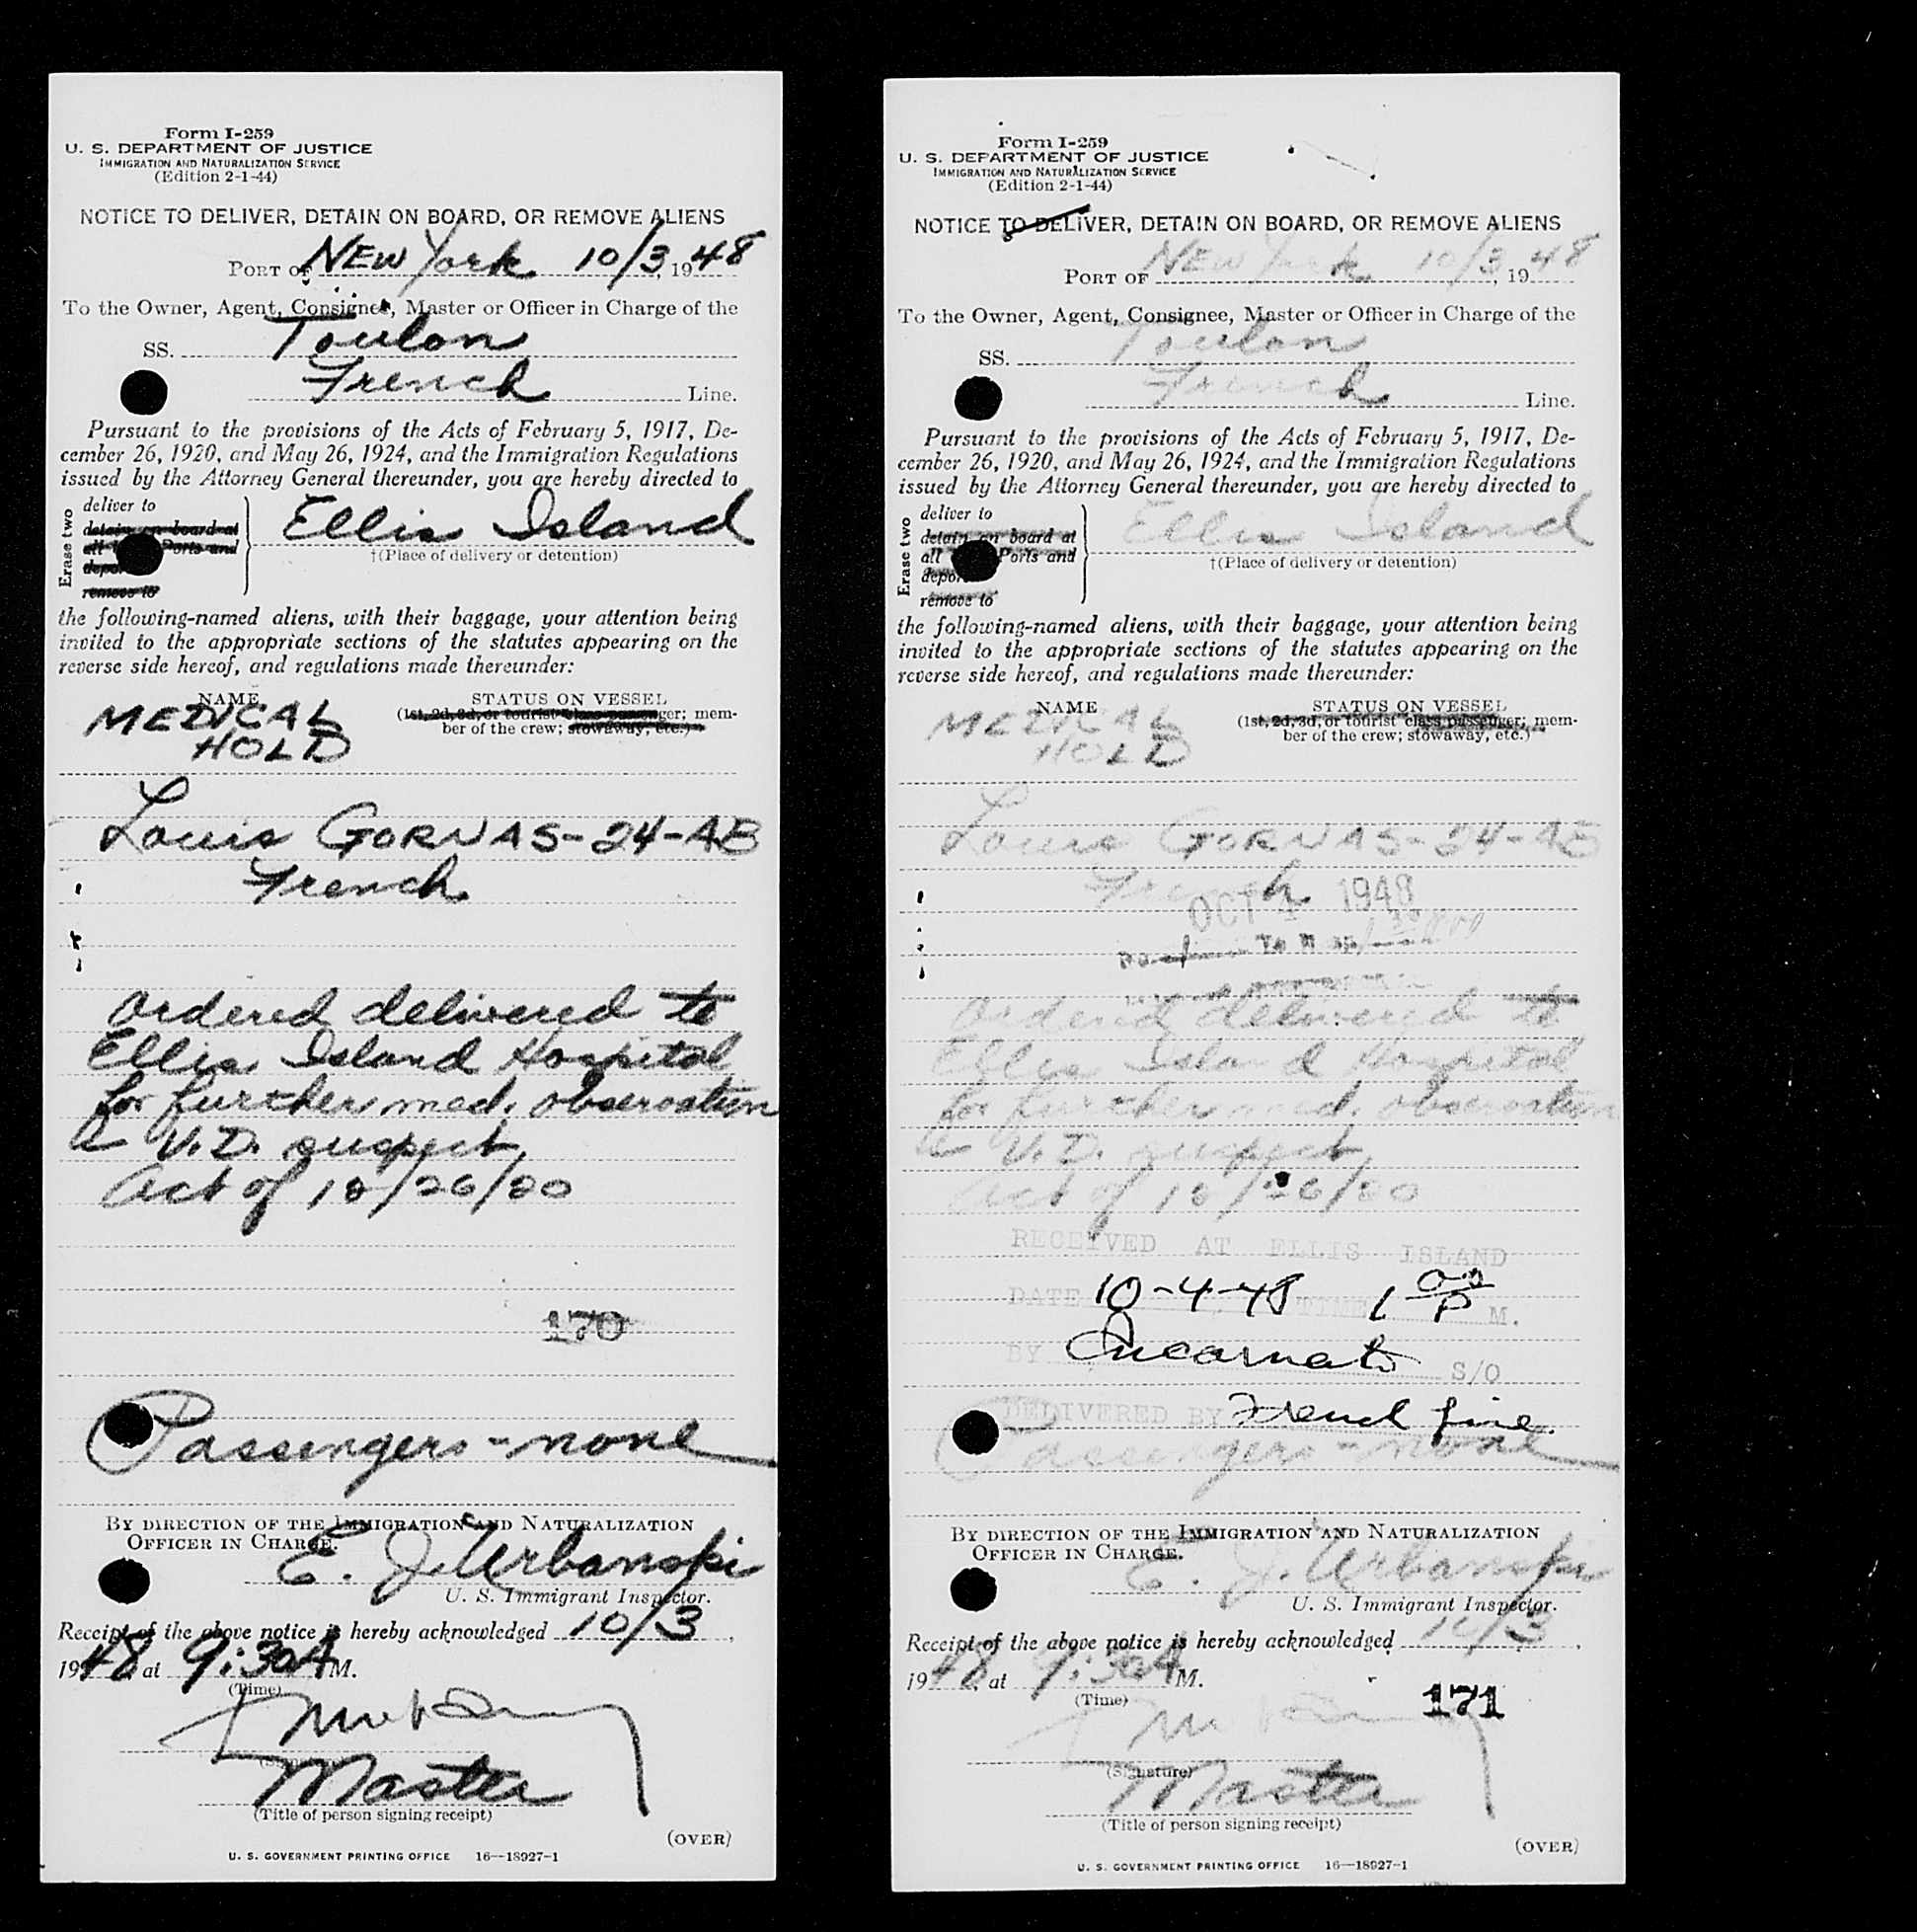 Form I-259
U. S. DEPARTMENT OF JUSTICE
IMMIGRATION AND NATURALIZATION SERVICE
(Edition 2-1-44)
NOTICE TO DELIVER, DETAIN ON BOARD, OR REMOVE ALIENS
PORT OF NEW York 10/3, 1948
To the Owner, Agent, Consignee, Master or Officer in Charge of the
SS. Toulon
French Line.
Pursuant to the provisions of the Acts of February 5, 1917, De-
cember 26, 1920, and May 26, 1924, and the Immigration Regulations
issued by the Attorney General thereunder, you are hereby directed to
Erase two
deliver to
detain on board at
all Ports and
remove to
Ellis Island
†(Place of delivery or detention)
the following-named aliens, with their baggage, your attention being
invited to the appropriate sections of the statutes appearing on the
reverse side hereof, and regulations made thereunder:
NAME
STATUS ON VESSEL
(1st, 2d, 3d, or tourist class passenger; mem-
ber of the crew; stowaway, etc.)
MEDICAL
HOLD
Louis GORNAS-24-AB
French
Ordered delivered to
Ellis Island Hospital
for further med. observation
a V.D. suspect
Act of 12/26/20
170
Passengers - none
BY DIRECTION OF THE IMMIGRATION AND NATURALIZATION
OFFICER IN CHARGE.
E. J. Urbanski
U. S. Immigrant Inspector.
Receipt of the above notice is hereby acknowledged 10/3,
1948 at 9:30A M.
(Time)
Master
(Title of person signing receipt)
(OVER)
U. S. GOVERNMENT PRINTING OFFICE 16—18927-1
Form I-259
U. S. DEPARTMENT OF JUSTICE
IMMIGRATION AND NATURALIZATION SERVICE
(Edition 2-1-44)
NOTICE TO DELIVER, DETAIN ON BOARD, OR REMOVE ALIENS
PORT OF NEW York 10/3, 1948
To the Owner, Agent, Consignee, Master or Officer in Charge of the
SS. Toulon
French Line.
Pursuant to the provisions of the Acts of February 5, 1917, De-
cember 26, 1920, and May 26, 1924, and the Immigration Regulations
issued by the Attorney General thereunder, you are hereby directed to
Erase two
deliver to
detain on board at
all Ports and
remove to
Ellis Island
†(Place of delivery or detention)
the following-named aliens, with their baggage, your attention being
invited to the appropriate sections of the statutes appearing on the
reverse side hereof, and regulations made thereunder:
NAME
STATUS ON VESSEL
(1st, 2d, 3d, or tourist class passenger; mem-
ber of the crew; stowaway, etc.)
MEDICAL
HOLD
Louis GORNAS-24-AB
French
OCT 1948
Ordered delivered to
Ellis Island Hospital
for further med. observation
a V.D. suspect
Act of 12/26/20
RECEIVED AT ELLIS ISLAND
DATE 10-4-48 TIME 1 00 P M.
BY Incarnato S/O
DELIVERED BY French Line.
Passengers - none
BY DIRECTION OF THE IMMIGRATION AND NATURALIZATION
OFFICER IN CHARGE.
E. J. Urbanski
U. S. Immigrant Inspector.
Receipt of the above notice is hereby acknowledged 10/3,
1948, at 9:30A M.
(Time)
171
(Signature)
Master
(Title of person signing receipt)
(OVER)
U. S. GOVERNMENT PRINTING OFFICE 16—18927-1